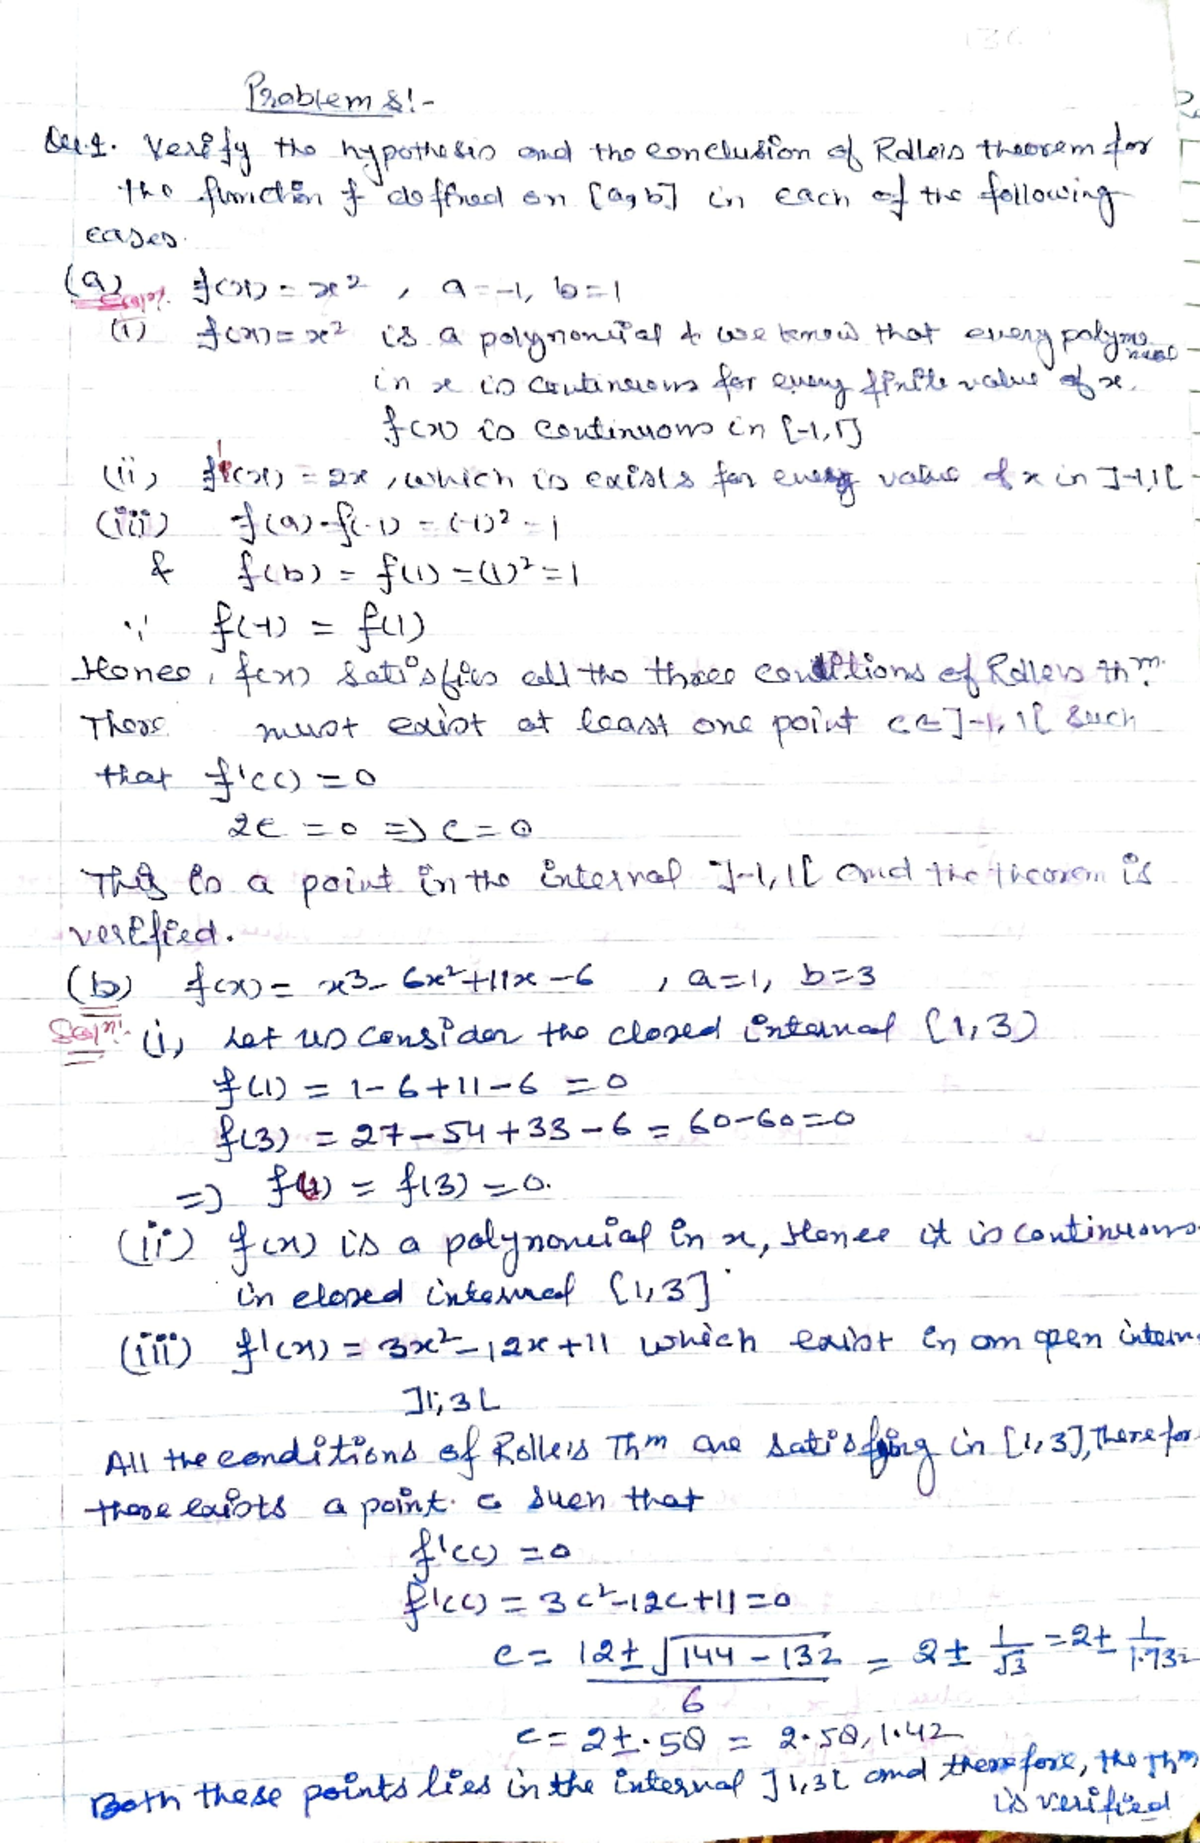 Problems:-
Que.1. Verify the hypothesis and the conclusion of Rolle's theorem for
the function f defined on [a,b] in each of the following
cases.
(a) f(x) = x² , a = -1, b = 1
Solⁿ.
(i) f(x) = x² is a polynomial & we know that every polynomial
in x is continuous for every finite value of x.
f(x) is continuous in [-1,1]
(ii) f'(x) = 2x , which is exists for every value of x in ]-1,1[
(iii) f(a) = f(-1) = (-1)² = 1
& f(b) = f(1) = (1)² = 1
∵ f(-1) = f(1)
Hence, f(x) satisfies all the three conditions of Rolle's thm.
There must exist at least one point c∈]-1,1[ such
that f'(c) = 0
2c = 0 ⇒ c = 0
This is a point in the interval ]-1,1[ and the theorem is
verified.
(b) f(x) = x³ - 6x² + 11x - 6 , a = 1, b = 3
Solⁿ: (i) Let us consider the closed interval [1,3)
f(1) = 1 - 6 + 11 - 6 = 0
f(3) = 27 - 54 + 33 - 6 = 60 - 60 = 0
⇒ f(1) = f(3) = 0.
(ii) f(x) is a polynomial in x, Hence it is continuous
in closed interval [1,3]
(iii) f'(x) = 3x² - 12x + 11 which exist in an open interv
]1,3[
All the conditions of Rolle's Thm are satisfying in [1,3], Therefor
there exists a point c such that
f'(c) = 0
f'(c) = 3c² - 12c + 11 = 0
c = 12 ± √144 - 132 / 6 = 2 ± 1/√3 = 2 ± 1/1.732
c = 2 ± .58 = 2.58, 1.42
Both these points lies in the interval ]1,3[ and therefore, the Thm
is verified